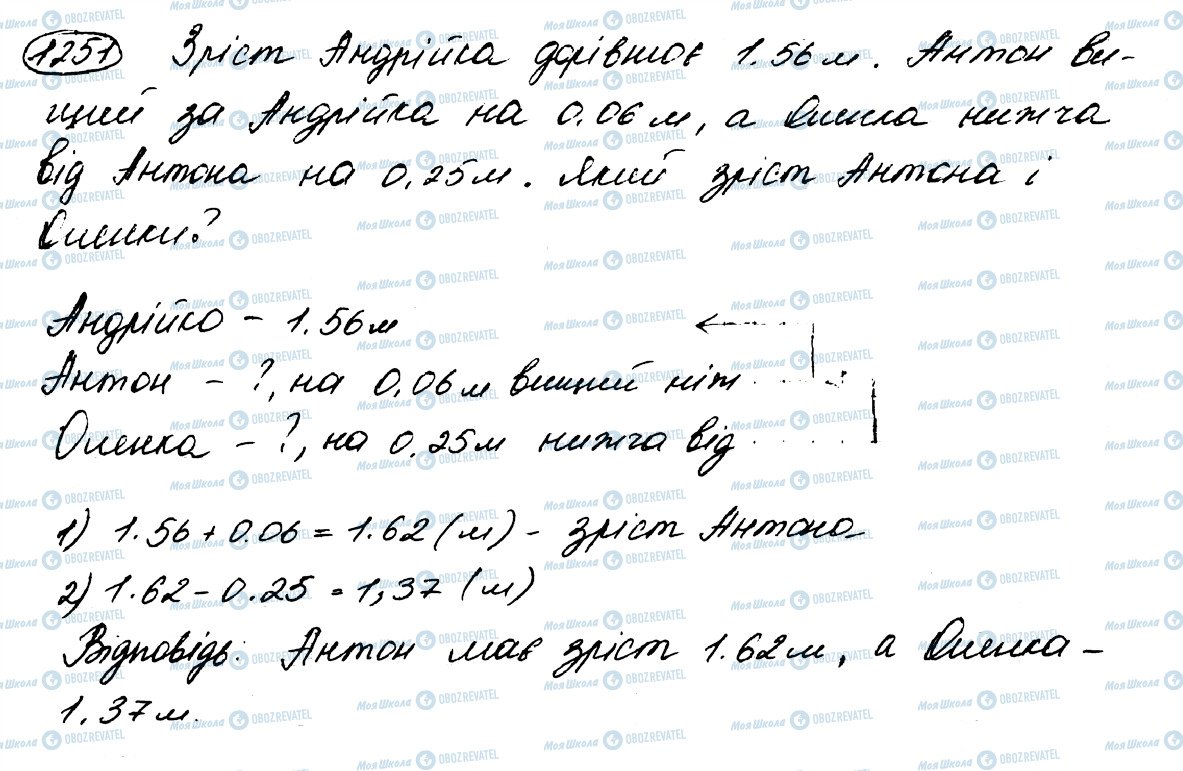 1251 Зріст Андрійка дорівнює 1.56 м. Антон ви-
щий за Андрійка на 0.06 м, а Оленка нижча
від Антона на 0.25 м. Який зріст Антона і
Оленки?
Андрійко – 1.56 м
Антон – ?, на 0.06 м вищий ніж
Оленка – ?, на 0.25 м нижча від
1) 1.56 + 0.06 = 1.62 (м) – зріст Антона
2) 1.62 – 0.25 = 1,37 (м)
Відповідь: Антон має зріст 1.62 м, а Оленка –
1.37 м.